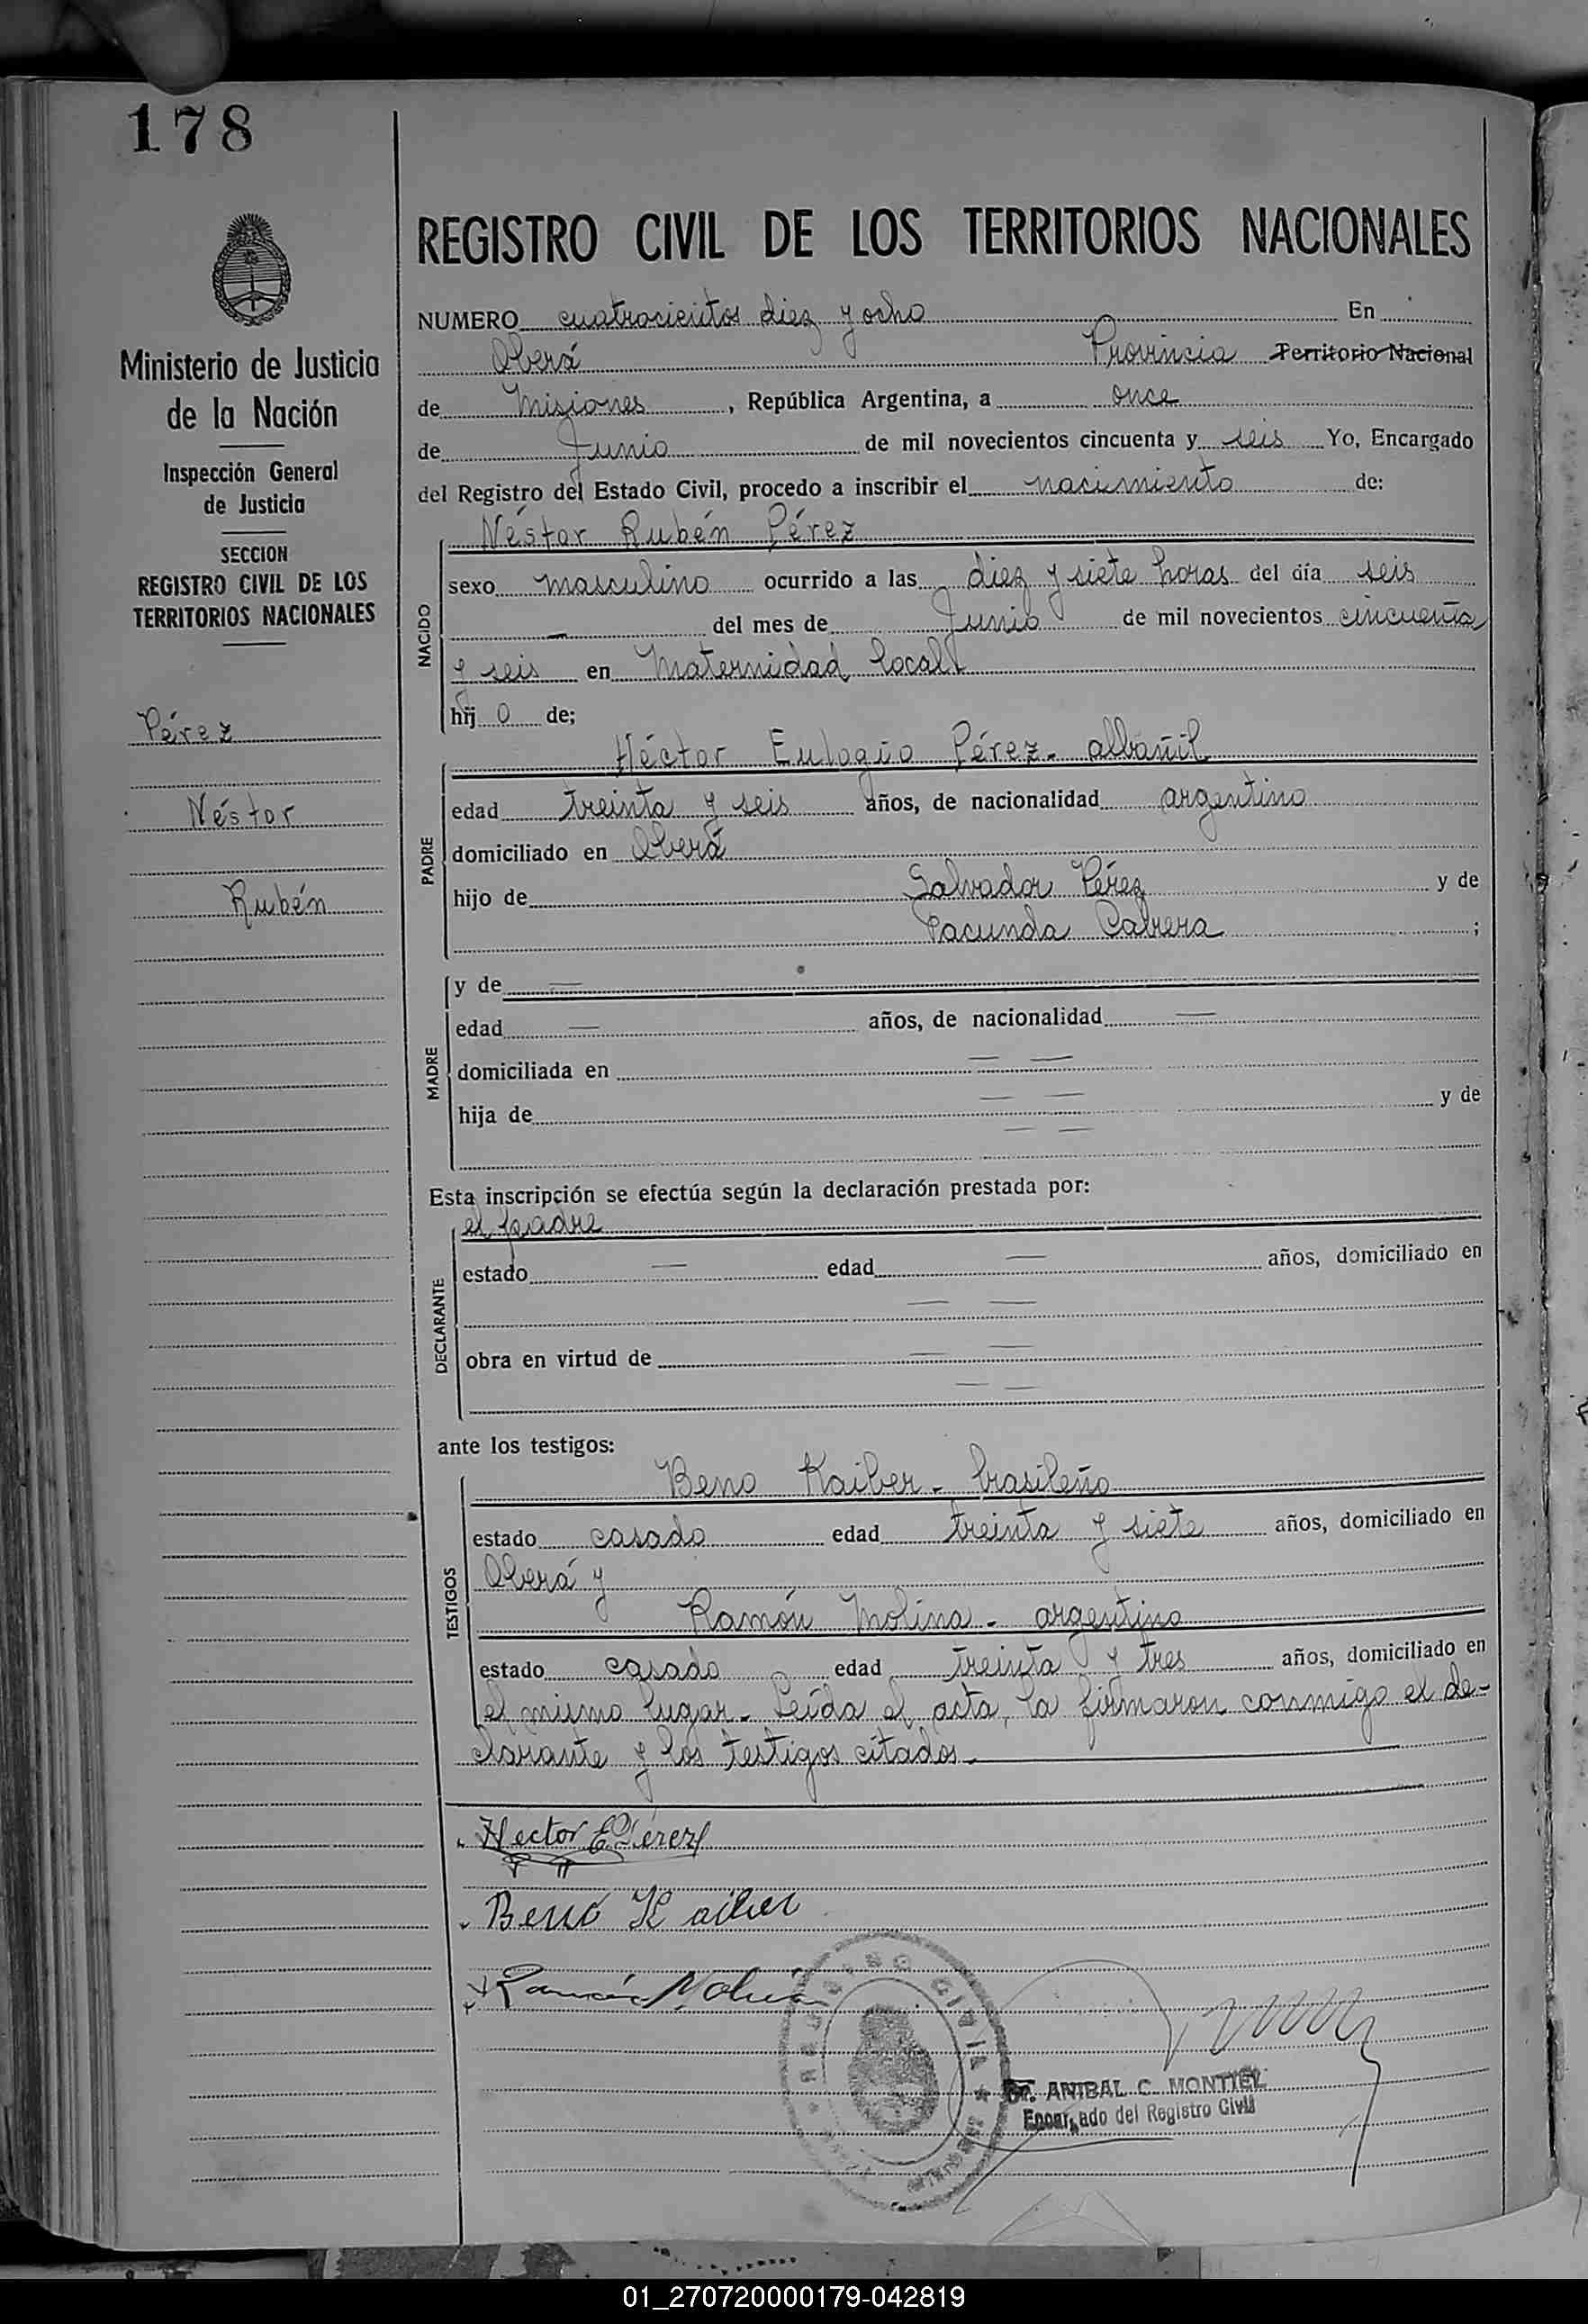 178
Ministerio de Justicia
de la Nación
Inspección General
de Justicia
SECCION
REGISTRO CIVIL DE LOS
TERRITORIOS NACIONALES
Pérez
Néstor
Rubén
REGISTRO CIVIL DE LOS TERRITORIOS NACIONALES
NUMERO cuatrocientos diez y ocho En
Oberá Provincia Territorio Nacional
de Misiones, República Argentina, a once
de Junio de mil novecientos cincuenta y seis Yo, Encargado
del Registro del Estado Civil, procedo a inscribir el nacimiento de:
Néstor Rubén Pérez
NACIDO
sexo masculino ocurrido a las diez y siete horas del día seis
— del mes de Junio de mil novecientos cincuenta
y seis en Maternidad local
hij o de;
Héctor Eulogio Pérez - albañil
PADRE
edad treinta y seis años, de nacionalidad argentino
domiciliado en Oberá
hijo de Salvador Pérez y de
Facunda Cabrera ;
MADRE
y de —
edad — años, de nacionalidad —
domiciliada en — —
hija de — — y de
— —
Esta inscripción se efectúa según la declaración prestada por:
el padre
DECLARANTE
estado — edad — años, domiciliado en
— —
obra en virtud de — —
— —
ante los testigos:
TESTIGOS
Beno Kaiber - brasileño
estado casado edad treinta y siete años, domiciliado en
Oberá y
Ramón Molina - argentino
estado casado edad treinta y tres años, domiciliado en
el mismo lugar - Leída el acta, la firmaron conmigo el de-
clarante y los testigos citados -
Hector E Pérez
Beno Kaiber
Ramón Molina
REGISTRO CIVIL
Dr. ANIBAL C. MONTIEL
Encargado del Registro Civil
01_270720000179-042819